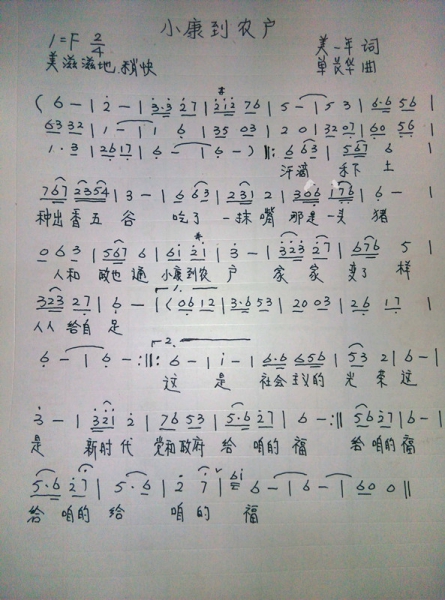 小康到农户
1=F 2/4
美一年 词
美滋滋地 稍快
单茛华 曲
( 6 - | 2 - | 3·3 2 7 | 2 1 2 7 6 | 5 - | 5 3 | 6·6 5 6 |
6 3 3 2 | 1 - | 1 6 | 3 5 0 3 | 2 0 | 3 2 0 7 | 6 0 5 6 |
1 · 3 | 2 6 1 7 | 6 - | 6 - ) ‖: 6 6 3 | 5 6 7 6 |
汗滴 禾下 土
7 6 7 2 3 5 4 | 3 - | 6 6 3 | 2 3 1 2 | 3 0 6 1 7 6 | 6 - |
种出香五 谷 吃了 一抹嘴 那是一头 猪
0 6 3 | 5 6 7 6 | 6 1 2 1 | 3 - | 3 2 3 2 7 | 6 7 6 5 |
人和 政也通 小康到农 户 家 家 变了 样
3 2 3 2 7 | 6 - | ( 0 6 1 2 | 3·6 5 3 | 2 0 0 3 | 2 6 1 7 |
人人 给自 足
6 - | 6 - :‖: 6 - | 1 - | 6·6 6 5 6 | 5 3 2 | 6 - |
这 是 社会主义的 光 荣 这
3 - | 3 2 1 2 | 7 6 5 3 | 5·6 2 7 | 6 - :‖ 5 6 2 7 | 6 - |
是 新时代 党和政府 给 咱的 福 给咱的福
5·6 2 7 | 5 · 6 | 2 7 | 6 1 6 - | 6 - | 6 0 0 ‖
给 咱的 给 咱的 福